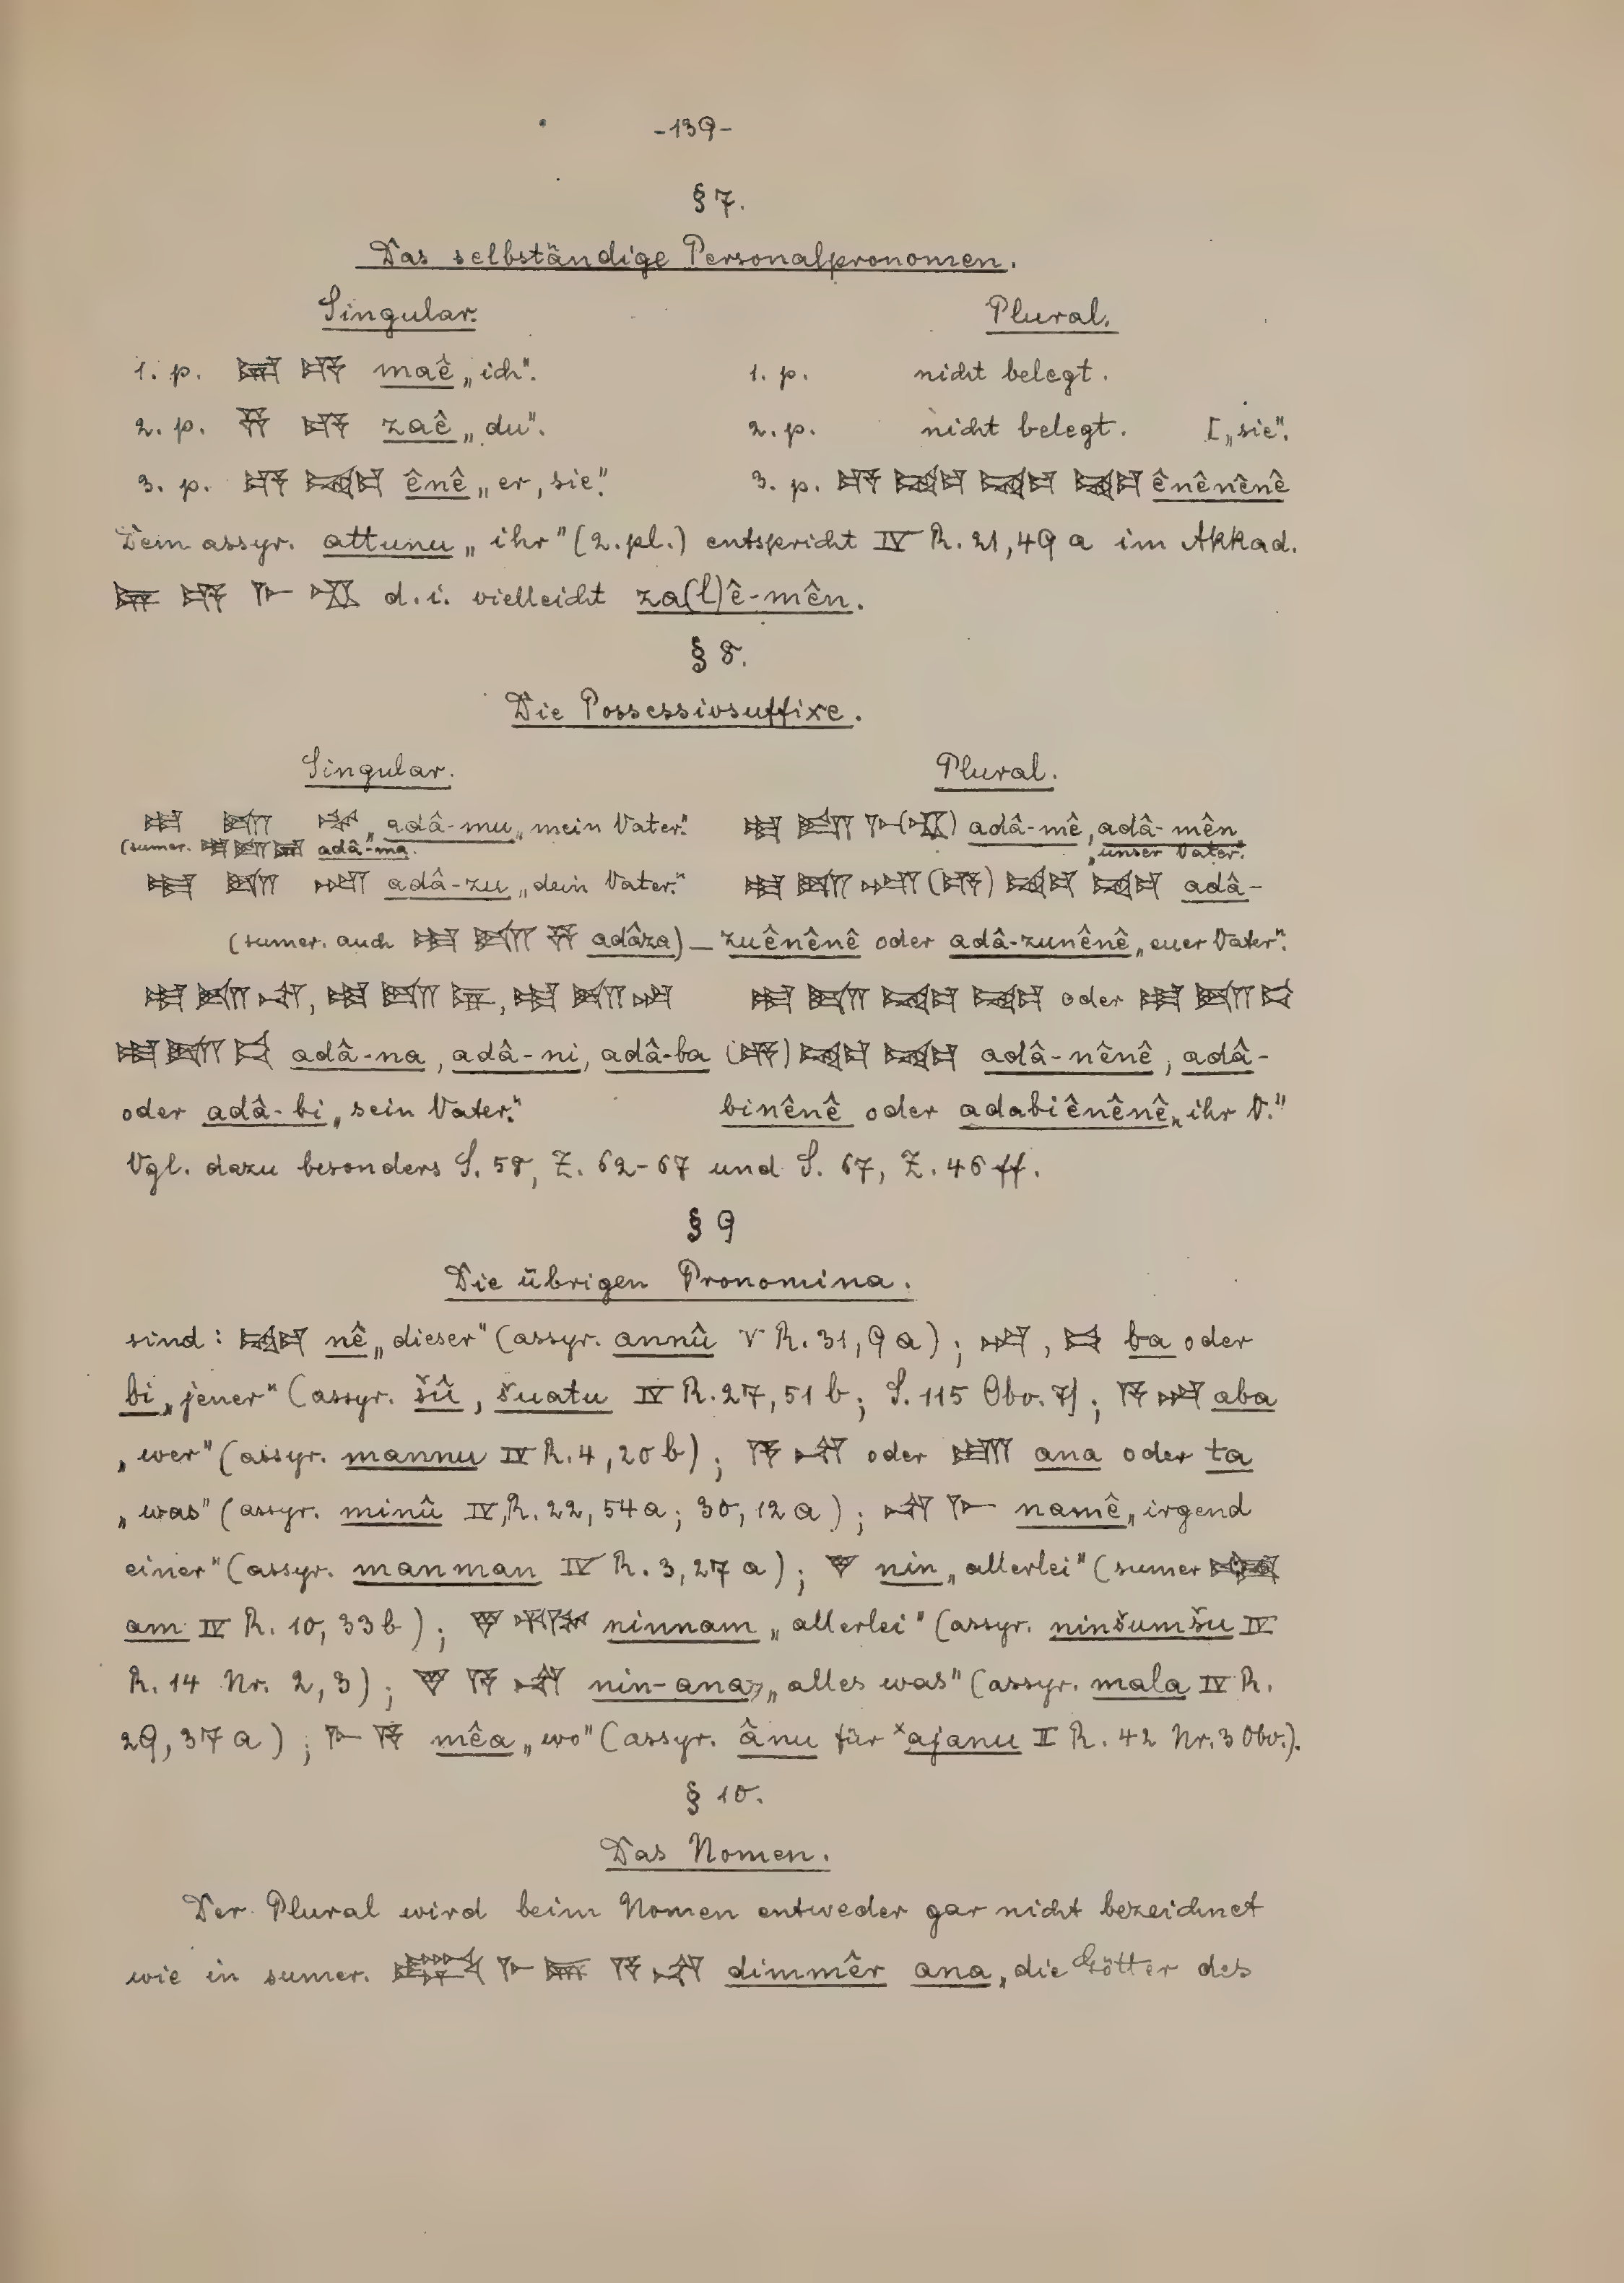 -139-
§ 7.
Das selbständige Personalpronomen.
Singular. Plural.
1. p. maê „ich“. 1. p. nicht belegt.
2. p. zaê „du“. 2. p. nicht belegt. [„sie“.
3. p. ênê „er, sie“. 3. p. ênênênê
Dem assyr. attunu „ihr“ (2. pl.) entspricht IV R. 21, 49 a im Akkad.
d. i. vielleicht za(l)ê-mên.
§ 8.
Die Possessivsuffixe.
Singular. Plural.
adâ-mu „mein Vater“. adâ-mê, adâ-mên
(sumer. adâ-ma. „unser Vater“.
adâ-zu „dein Vater“. adâ-
(sumer. auch adâza) — zuênênê oder adâ-zunênê „euer Vater“.
oder
adâ-na, adâ-ni, adâ-ba adâ-nênê, adâ-
oder adâ-bi „sein Vater“. binênê oder adabiênênê „ihr V.“
Vgl. dazu besonders S. 58, Z. 62-67 und S. 67, Z. 46 ff.
§ 9
Die übrigen Pronomina.
sind: nê „dieser“ (assyr. annû V R. 31, 9 a); , ba oder
bi „jener“ (assyr. šû, šuatu IV R. 27, 51 b; S. 115 Obv. 7); aba
„wer“ (assyr. mannu IV R. 4, 20 b); oder ana oder ta
„was“ (assyr. minû IV R. 22, 54 a; 30, 12 a); namê „irgend
einer“ (assyr. manman IV R. 3, 27 a); nin „allerlei“ (sumer
am IV R. 10, 33 b); ninnam „allerlei“ (assyr. ninšumšu IV
R. 14 Nr. 2, 3); nin-ana „alles was“ (assyr. mala IV R.
29, 37 a); mêa „wo“ (assyr. ânu für ˣajanu II R. 42 Nr. 3 Obv.).
§ 10.
Das Nomen.
Der Plural wird beim Nomen entweder gar nicht bezeichnet
wie in sumer. dimmêr ana „die Götter des